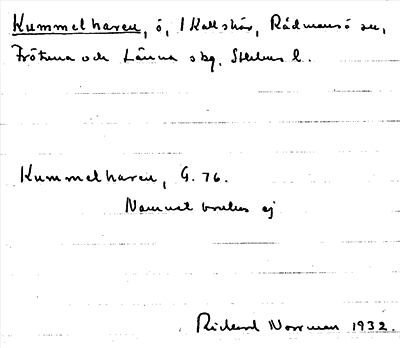 Kummelharen, ö, i Kallskär, Rådmansö sn,
Frötuna och Länna skg, Sthlms l.
Kummelharen, G. 76.
Namnet brukas ej
Rickard Norrman 1932.